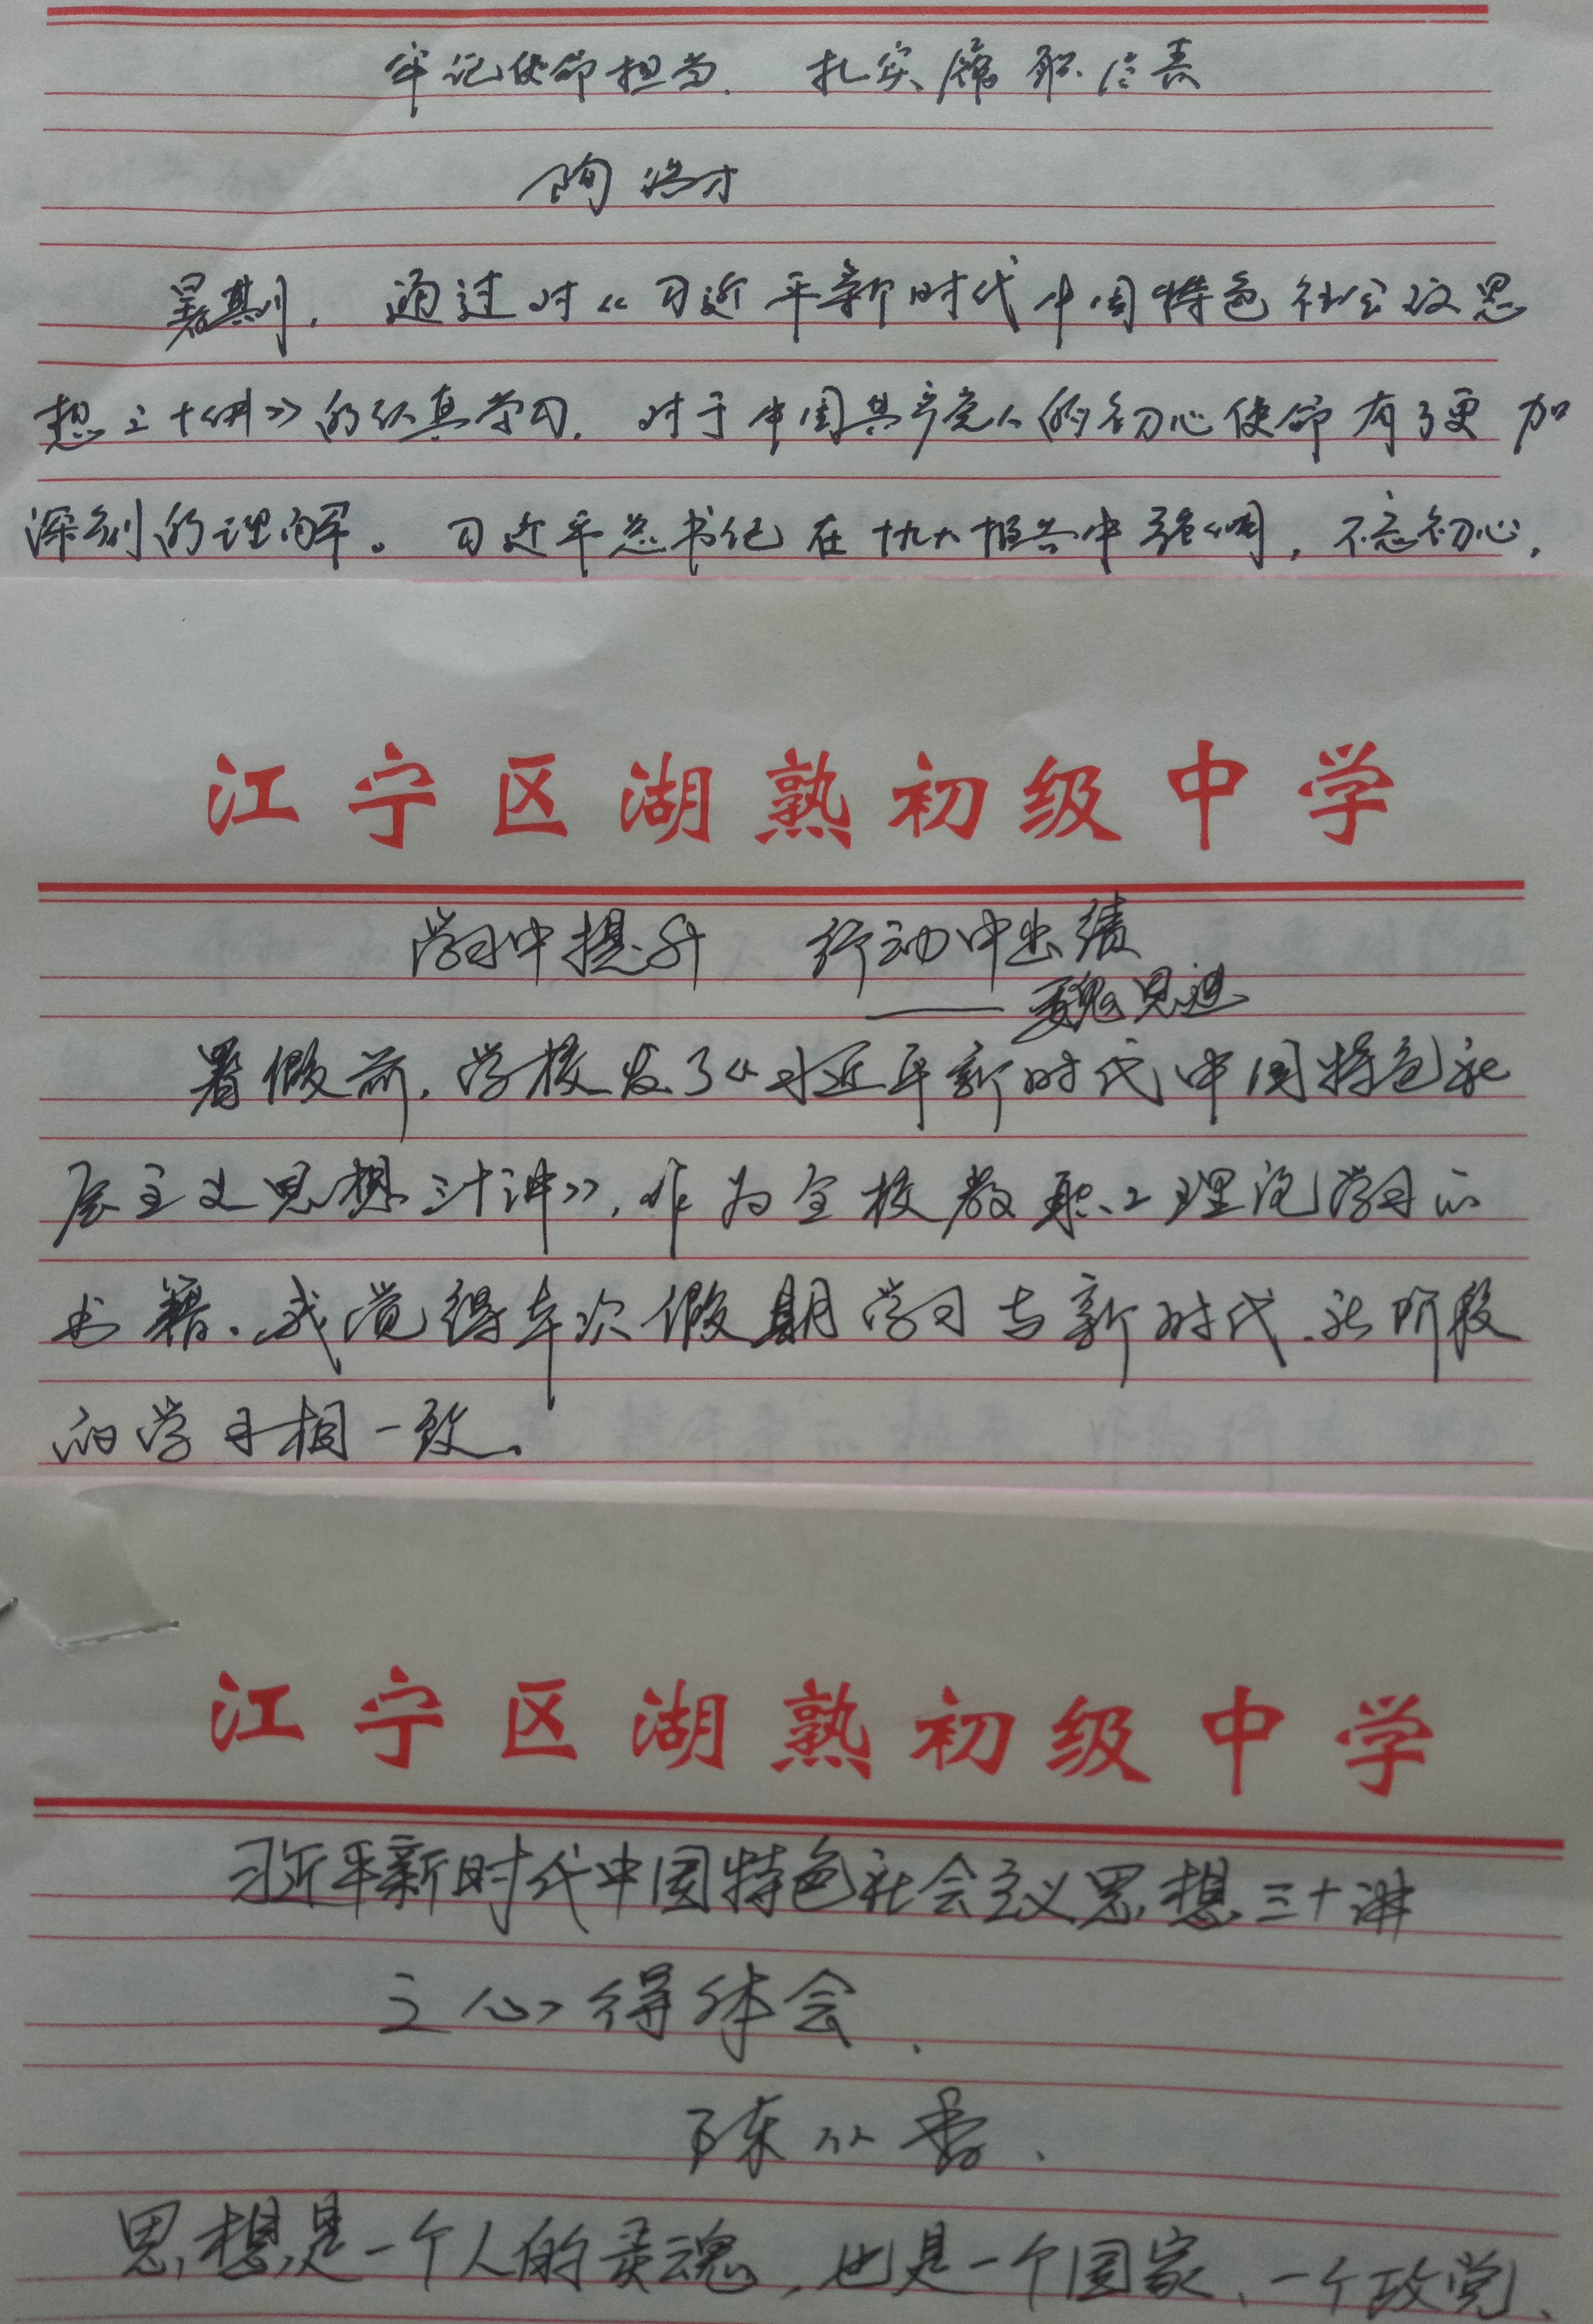 牢记使命担当 扎实履职尽责
陶
暑期，通过对《习近平新时代中国特色社会主义思
想三十讲》的认真学习，对于中国共产党人的初心使命有了更加
深刻的理解。习近平总书记在十九大报告中强调，不忘初心，
江宁区湖熟初级中学
学习中提升 行动中出绩
——魏思进
暑假前，学校发了《习近平新时代中国特色社
会主义思想三十讲》，作为全校教职工理论学习的
书籍、我觉得本次假期学习与新时代、新阶段
的学习相一致。
江宁区湖熟初级中学
习近平新时代中国特色社会主义思想三十讲
之心得体会
陈从香
思想是一个人的灵魂，也是一个国家、一个政党、